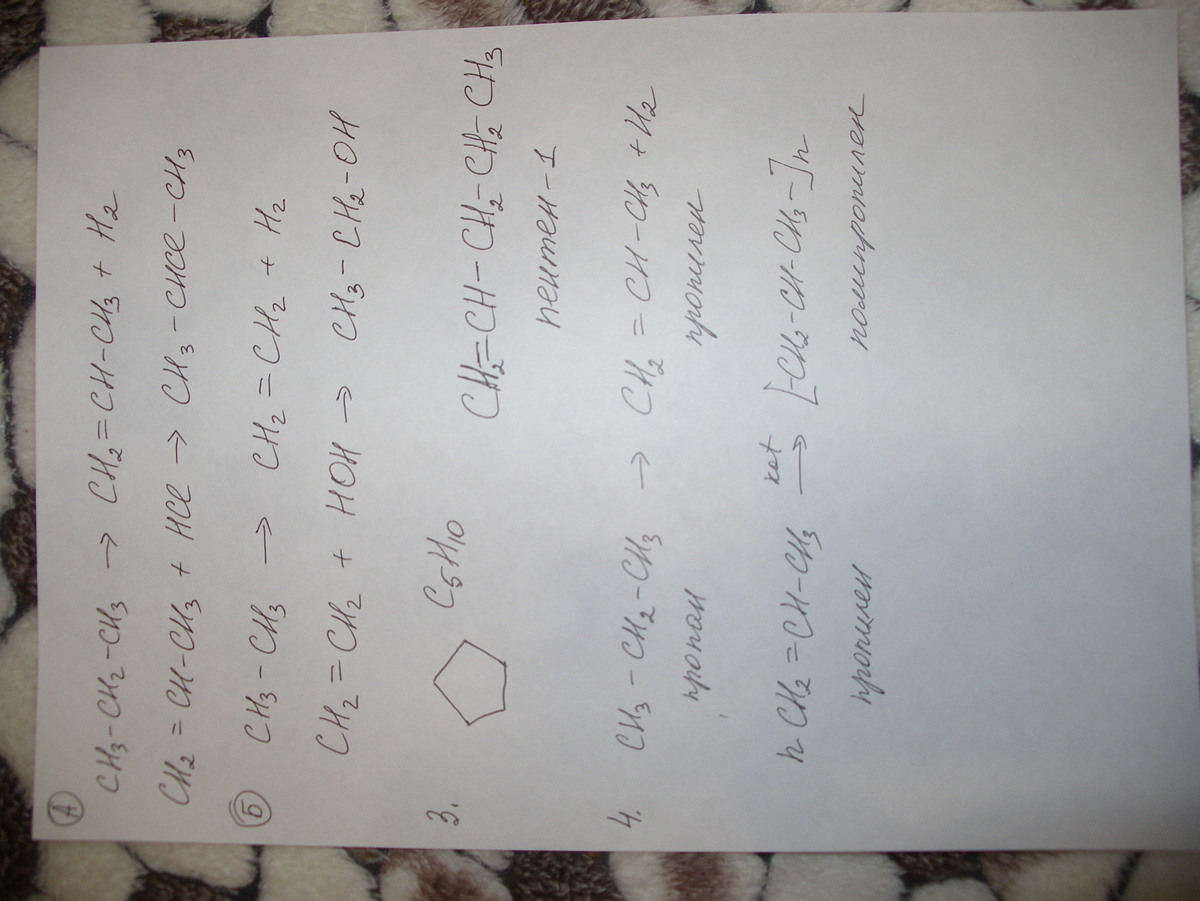 А
CH₃-CH₂-CH₃ → CH₂=CH-CH₃ + H₂
CH₂=CH-CH₃ + HCl → CH₃-CHCl-CH₃
Б
CH₃-CH₃ → CH₂=CH₂ + H₂
CH₂=CH₂ + HOH → CH₃-CH₂-OH
3. C₅H₁₀ CH₂=CH-CH₂-CH₂-CH₃
пентен-1
4. CH₃-CH₂-CH₃ → CH₂=CH-CH₃ + H₂
пропан пропилен
n CH₂=CH-CH₃ kat → [-CH₂-CH-CH₃-]n
пропилен полипропилен